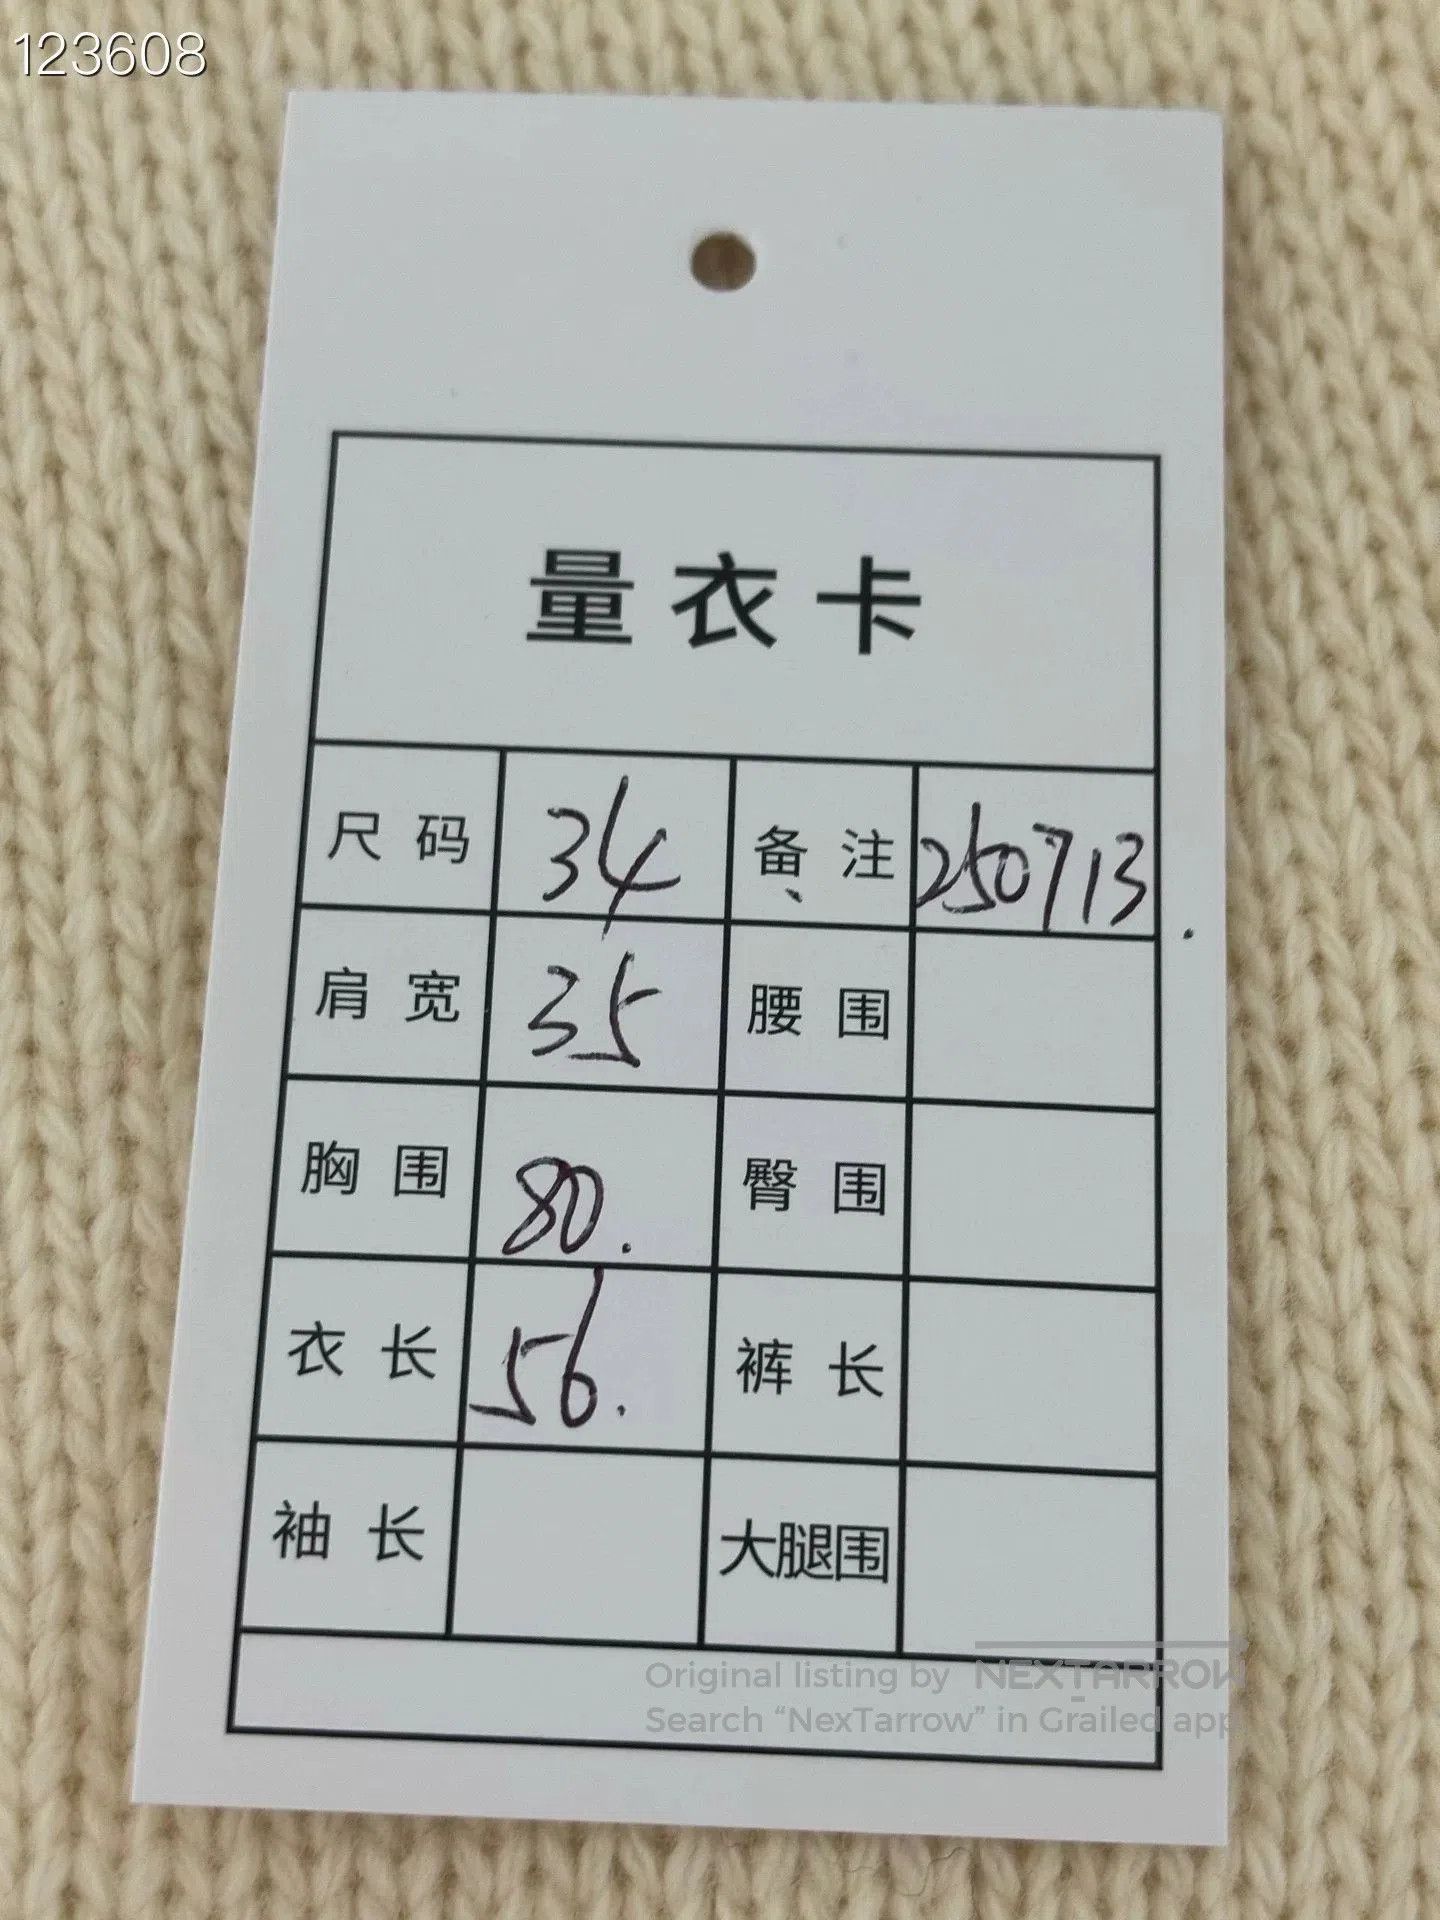 123608
量衣卡
尺码 34 备注 250713.
肩宽 35 腰围
胸围 80. 臀围
衣长 56. 裤长
袖长 大腿围
Original listing by NEXTARROW
Search “NexTarrow” in Grailed app